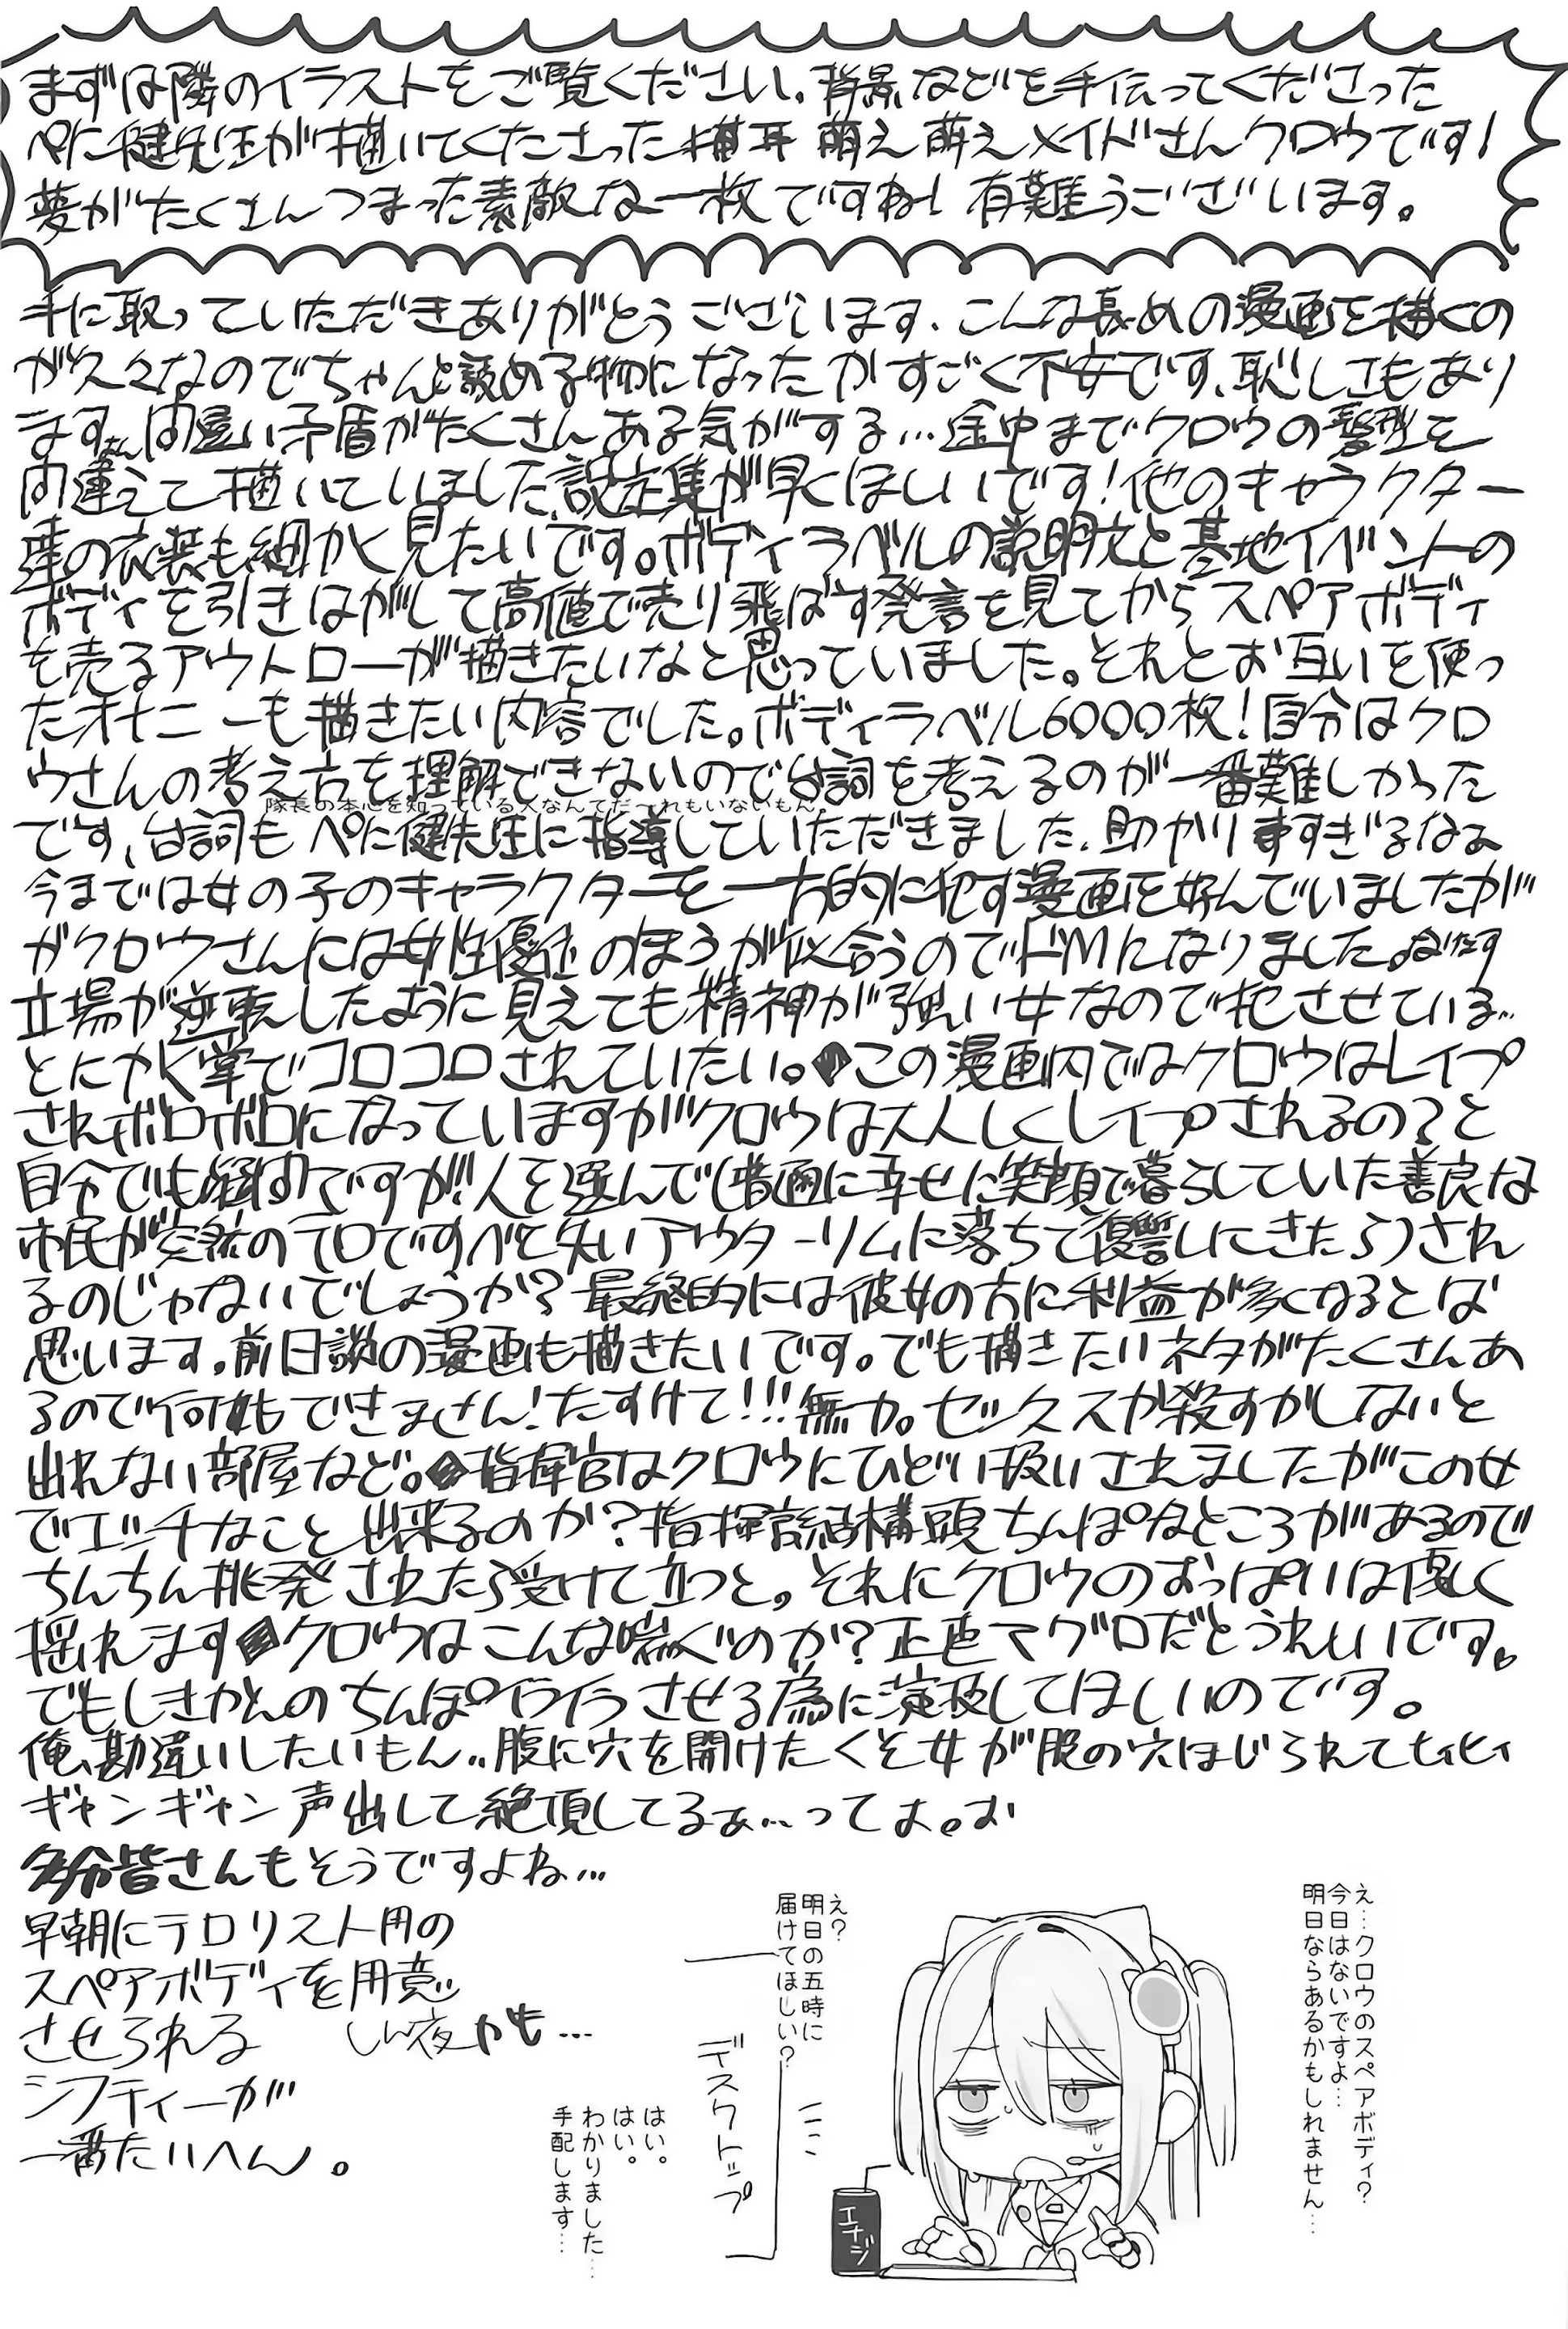 まずは隣のイラストをご覧ください。背景などを手伝ってくださった
ぺた健先生が描いてくださった猫耳萌え萌えメイドさんクロウです!
夢がたくさんつまった素敵な一枚ですね!有難うございます。
手に取っていただきありがとうございます、こんな長めの漫画を描くの
が久々なのでちゃんと読め る物になったかすごく不安です、恥しさもあり
ます、間違い矛盾がたくさんある気がする…途中までクロウの髪型を
間違えて描いていました、設定集が早くほしいです!他のキャラクター
達の衣装も細かく見たいです。ボディラベルの説明文と基地イベントの
ボディを引きはがして高値で売り飛ばす発言を見てからスペアボディ
を売るアウトローが描きたいなと思っていました。それとお互いを使っ
たオナニーも描きたい内容でした。ボディラベル6000枚!自分はクロ
ウさんの考え方を理解できないので台詞を考えるのが一番難しかった
隊長の本心を知っている人なんてだ〜れもいないもん。
です、台詞もぺた健先生に指導していただきました、助かりますすぎるなぁ
今までは女の子のキャラクターを一方的に犯す漫画を好んでいましたが
がクロウさんには女性優位のほうが似合うのでドMになりました。
立場が逆転したように見えても精神が強い女なので犯させている…
とにかく掌でコロコロされていたい。◆この漫画内ではクロウはレイプ
されボロボロになっていますがクロウは大人しくレイプされるの?と
自分でも疑問ですが!!人を選んで(普通に幸せに笑顔で暮らしていた善良な
市民が突然のテロですべてを失いアウターリムに落ちて復讐しにきたら)され
るのじゃないでしょうか?最終的には彼女の方に利益が多くなるとは
思います。前日談の漫画も描きたいです。でも描きたいネタがたくさんあ
るので何もできません!たすけて!!!無力。セックスか殺すかしないと
出れない部屋など。◆指揮官はクロウにひどい扱いされましたがこの女
でエッチなこと出来るのか?指揮官結構頭ちんぽなところがあるので
ちんちん挑発されたら受けて立つと。それにクロウのおっぱいは優しく
揺れます◆クロウはこんな喘ぐのか?正直マグロだとうれしいです。
でもしきかんのちんぽイライラさせる為に演技してほしいのです。
俺、勘違いしたいもん..腹に穴を開けたくそ女が股の穴ほじられてヒィヒィ
ギャンギャン声出して絶頂してるぁ…ってよ。お
多分皆さんもそうですよね…
早朝にテロリスト用の
スペアボディを用意
させられる
しん夜かも…
シフティーが
一番たいへん。
え…クロウのスペアボディ?
今日はないですよ…
明日ならあるかもしれません…
え?
明日の五時に
届けてほしい?
デスクトップ
エナジ
はい。
はい。
わかりました…
手配します…